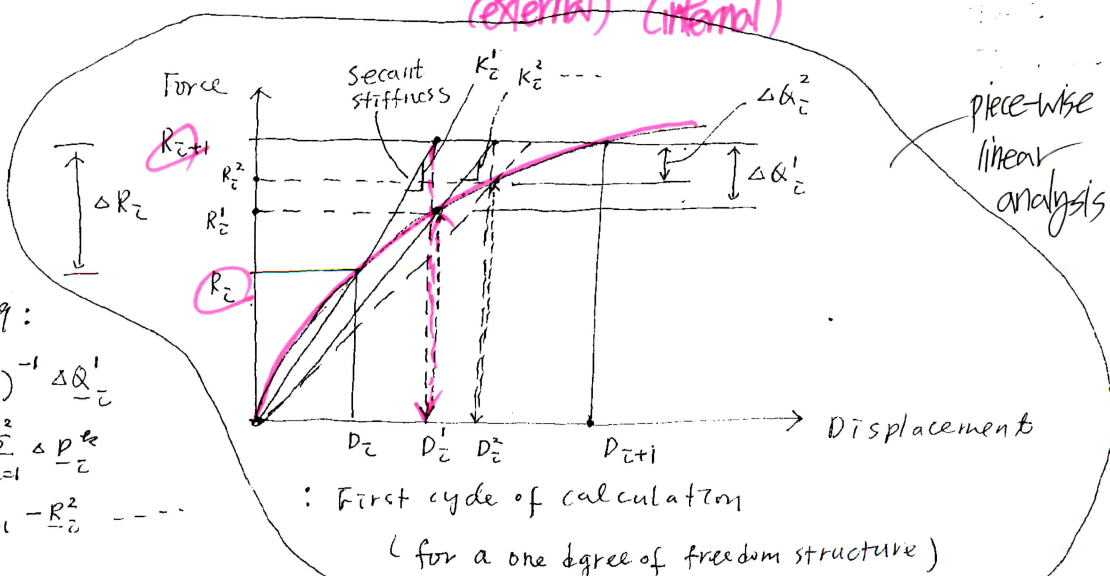 (external) (internal)
Force
secant
stiffness
K_i^1 K_i^2 ---
ΔQ_i^2
piece-wise
linear
analysis
R_{i+1}
R_i^2
ΔQ_i^1
ΔR_i
R_i^1
R_i
:
)^{-1} ΔQ_i^1
ΔP_i^k
- R_i^2 ----
D_i D_i^1 D_i^2 D_{i+1}
Displacement
: First cycle of calculation
( for a one dgree of freedom structure )